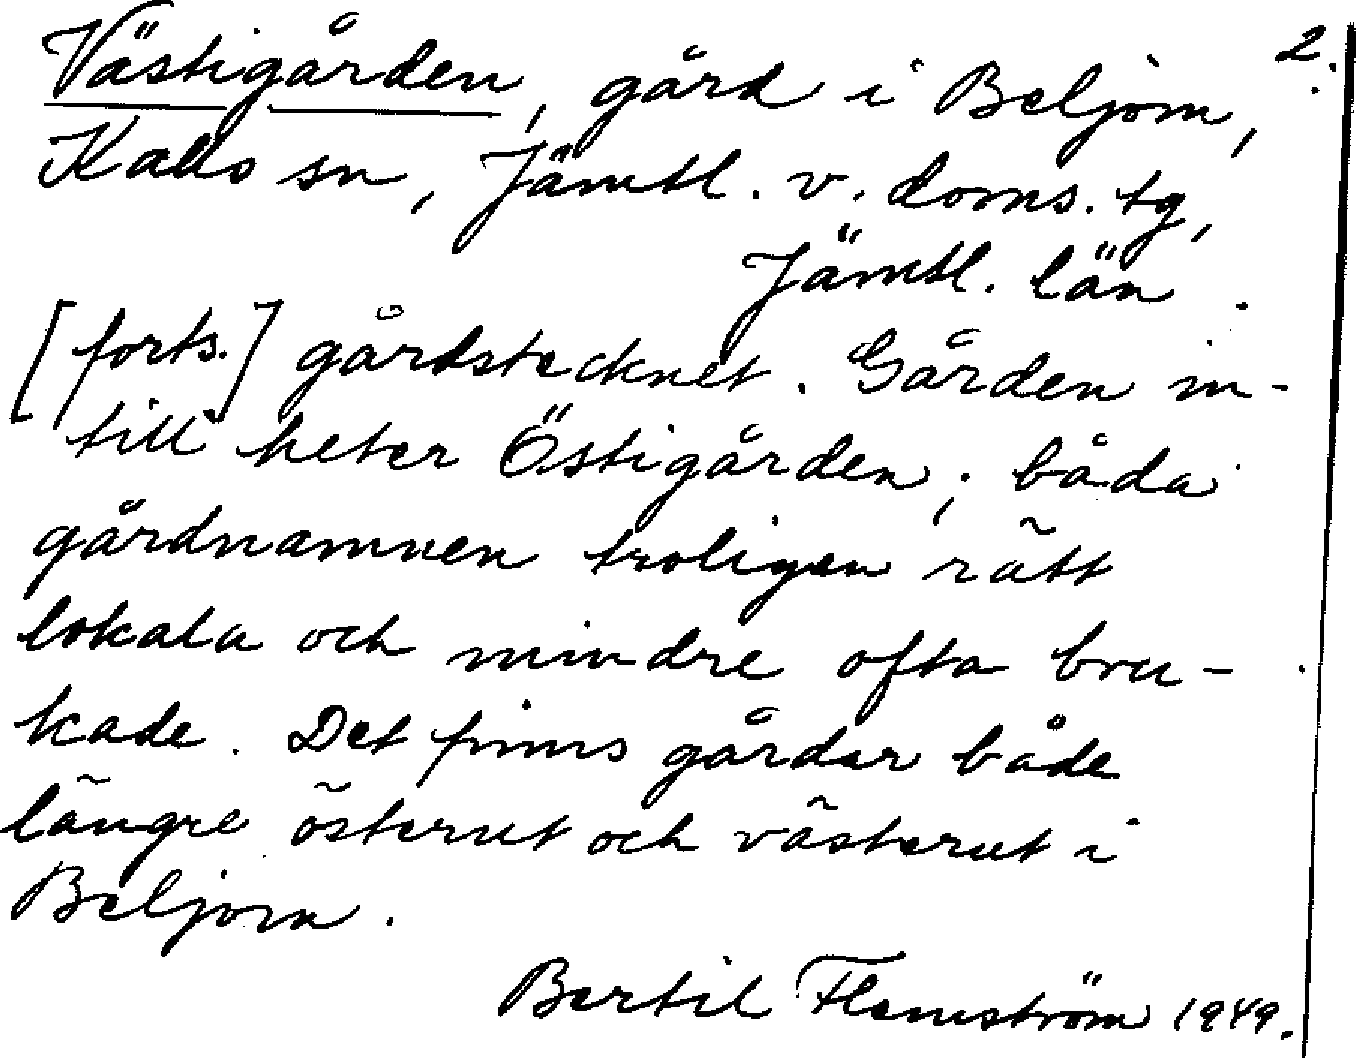 2.
Västigården, gård i Beljom,
Kalls sn, Jämtl. v. doms. tg,
Jämtl. län.
[forts.] gårdstecknet. Gården in-
till heter Östigården; båda
gårdnamnen troligen rätt
lokala och mindre ofta bru-
kade. Det finns gårdar både
längre österut och västerut i
Beljom.
Bertil Flemström 1949.